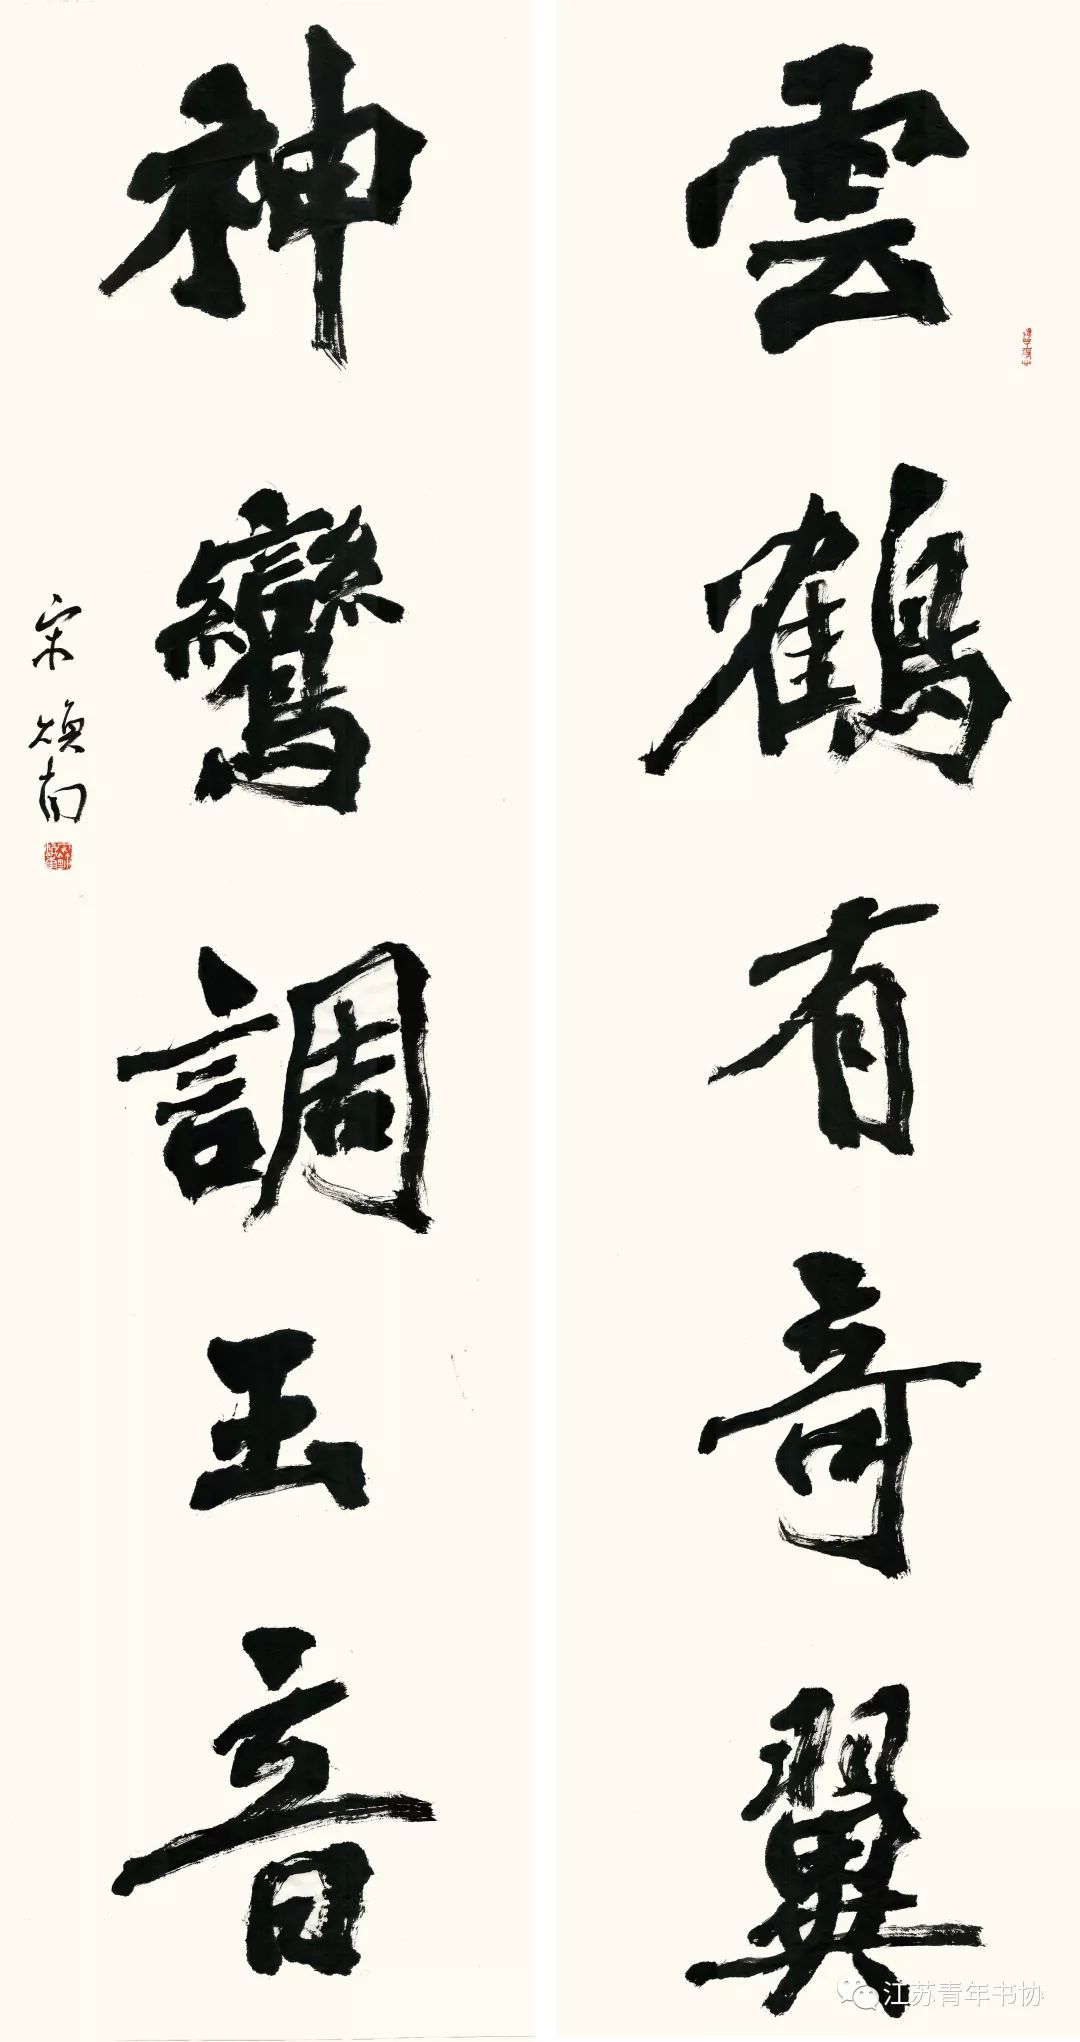 雲鶴有奇翼
神鸞調玉音
宋煥南
江苏青年书协